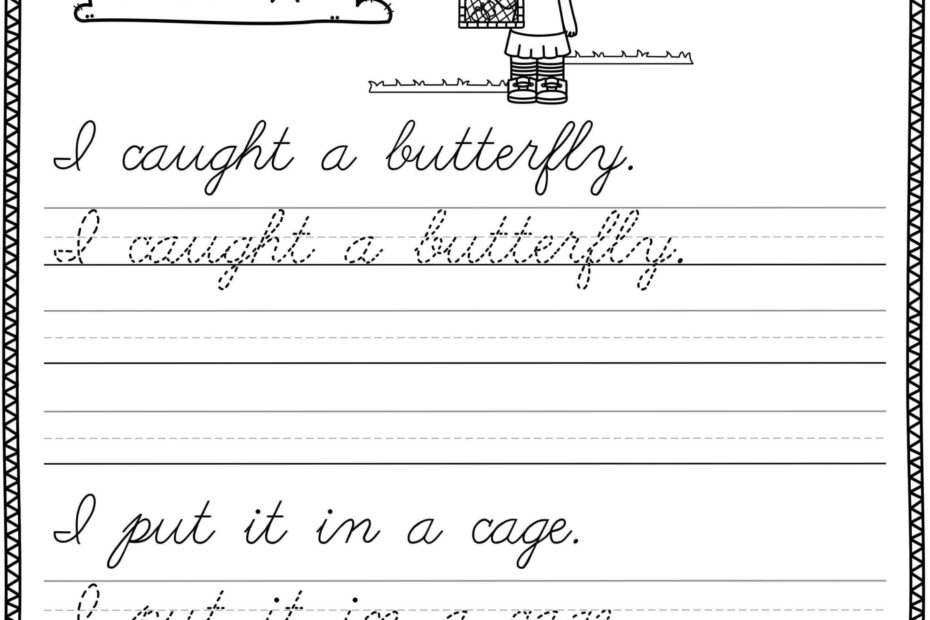 I caught a butterfly.
I caught a butterfly.
I put it in a cage.
I put it in a